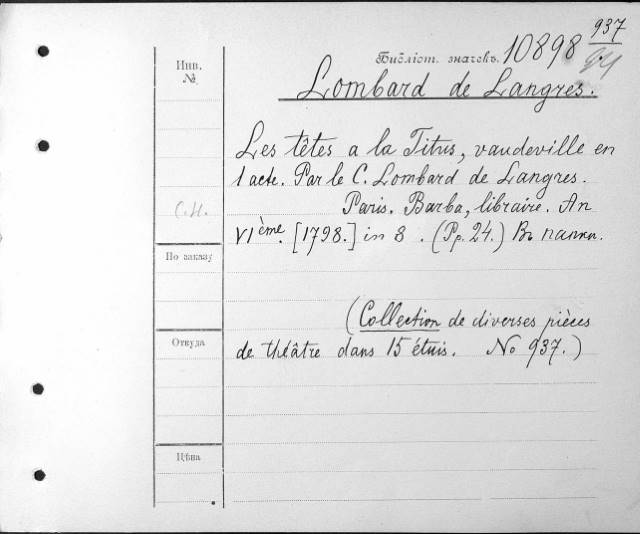 937
Инв.
№
Библіот. значекъ. 10898
Lombard de Langres.
Les têtes a la Titus, vaudeville en
1 acte. Par le C. Lombard de Langres.
Paris. Barba, libraire. An
VIème. [1798.] in 8. (Pp. 24.) Въ папки.
С.Н.
По заказу
(Collection de diverses pièces
Откуда
de théâtre dans 15 étuis. No 937.)
Цѣна